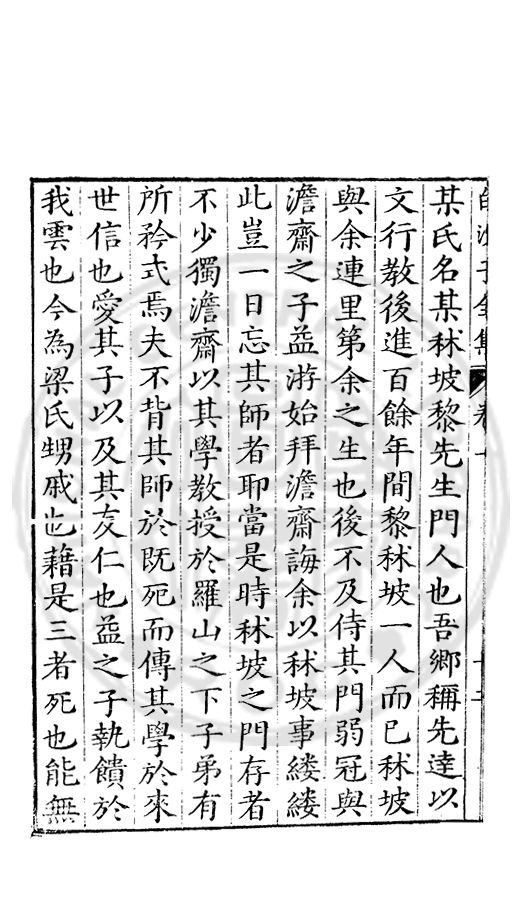 白沙子全集
某氏名某秫坡黎先生門人也吾鄉稱先達以
文行教後進百餘年間黎秫坡一人而已秫坡
與余連里第余之生也後不及侍其門弱冠與
澹齋之子益游始拜澹齋誨余以秫坡事縷縷
此豈一日忘其師者耶當是時秫坡之門存者
不少獨澹齋以其學教授於羅山之下子弟有
所矜式焉夫不背其師於既死而傳其學於來
世信也愛其子以及其友仁也益之子執饋於
我雲也今為梁氏甥戚也藉是三者死也能無